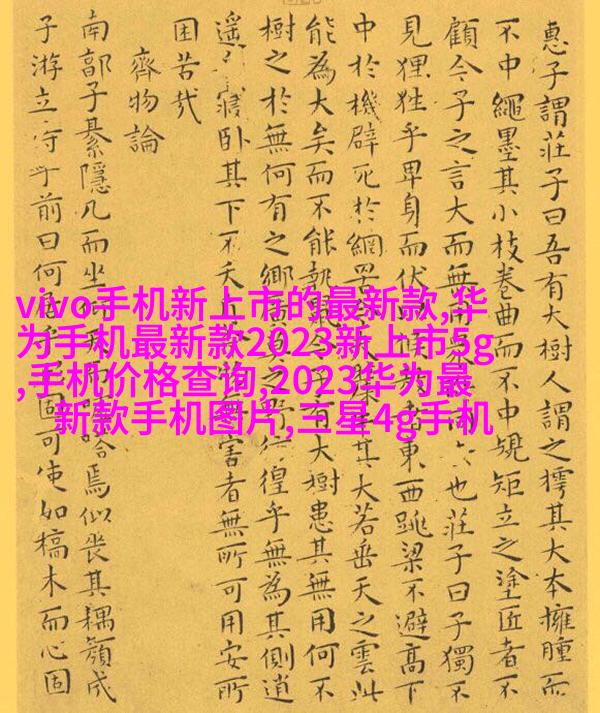 惠子謂莊子曰吾有大樹人謂之樗其大本擁腫而
不中繩墨其小枝卷曲而不中規矩立之塗匠者不
顧今子之言大而無用也莊子曰子獨不
見狸狌乎卑身而伏候者東西跳梁不避高下
中於機辟死於網罟其大若垂天之雲此
能為大矣而不能執鼠今子有大樹患其無用何不
樹之於無何有之鄉廣莫之野彷徨乎無為其側逍
遙寢臥其下不夭斤物無害者無所可用安所
困苦哉
齊物論
南郭子綦隱几而坐仰天焉似喪其耦顏成
子游立侍乎前曰何居乎固可使如槁木而心固
vivo手机新上市的最新款,华
为手机最新款2023新上市5g
,手机价格查询,2023华为最
新款手机图片,三星4g手机